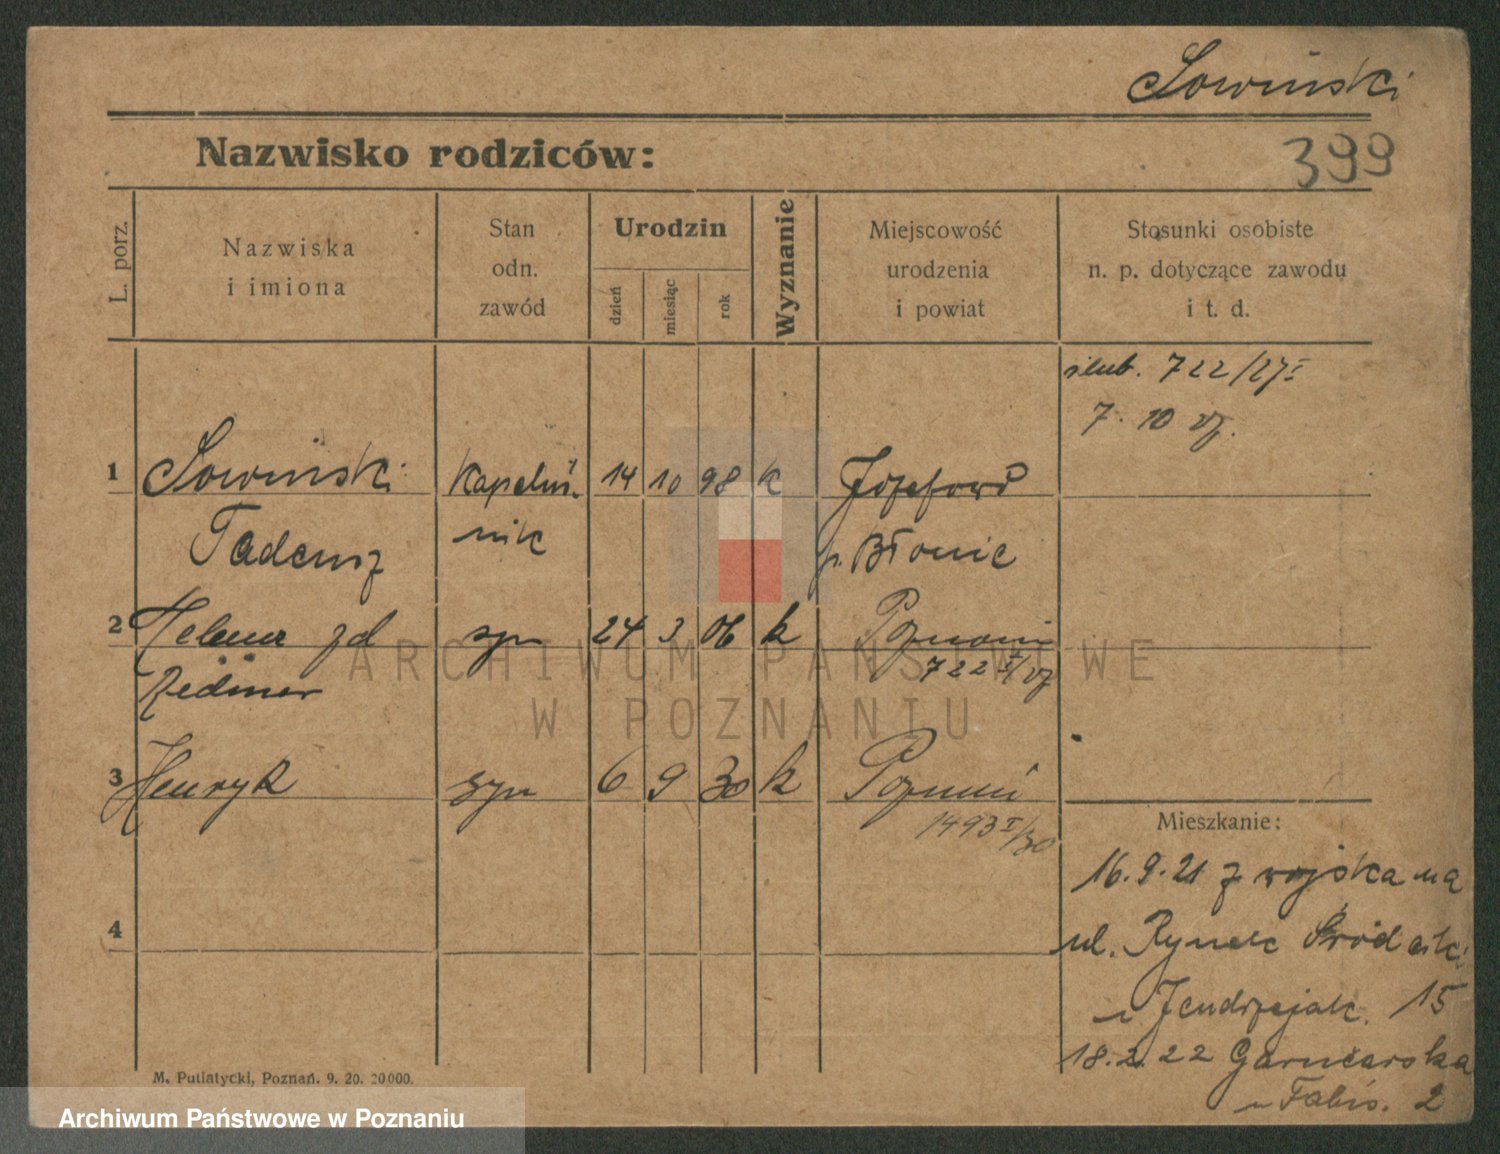 Sowiński
Nazwisko rodziców:
399
L. porz.
Nazwiska
i imiona
Stan
odn.
zawód
Urodzin
dzień
miesiąc
rok
Wyznanie
Miejscowość
urodzenia
i powiat
Stosunki osobiste
n. p. dotyczące zawodu
i t. d.
ślub. 722/27 I
7. 10
1 Sowiński kapelusz- 14 10 98 k Józefowo
Tadeusz nik p. Błonie
2 Helena zd 24 3 06 k Poznań
722 I/
3 Henryk syn 6 9 30 k Poznań
1493 I/30
Mieszkanie:
16.9.21 z wojska na
ul. Rynek Śródecki
u Jendrzejak. 15
4
18.2.22 Garncarska
u Fabiś. 2
M. Putiatycki, Poznań. 9. 20. 20000.
ARCHIWUM PAŃSTWOWE
W POZNANIU
Archiwum Państwowe w Poznaniu